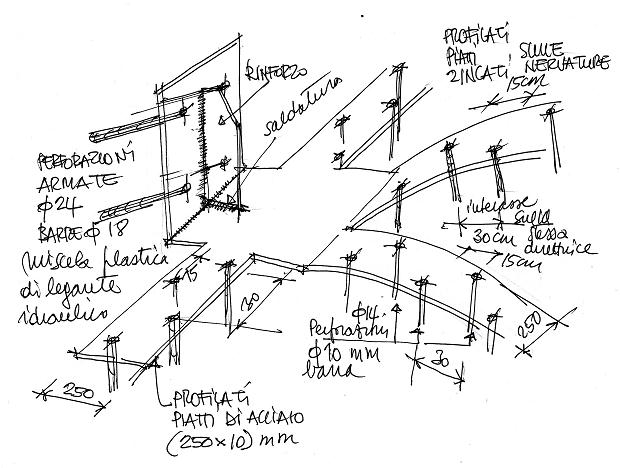 PROFILATI
PIATTI
ZINCATI
SULLE
NERVATURE
15cm
RINFORZO
saldatura
PERFORAZIONI
ARMATE
φ24
BARRE φ 18
Miscela plastica
di legante
idraulico
interasse
30cm
sulla
stessa
direttrice
15cm
15
30
φ14
Perforazioni
φ10 mm
barra
30
250
250
PROFILATI
PIATTI DI ACCIAIO
(250×10) mm